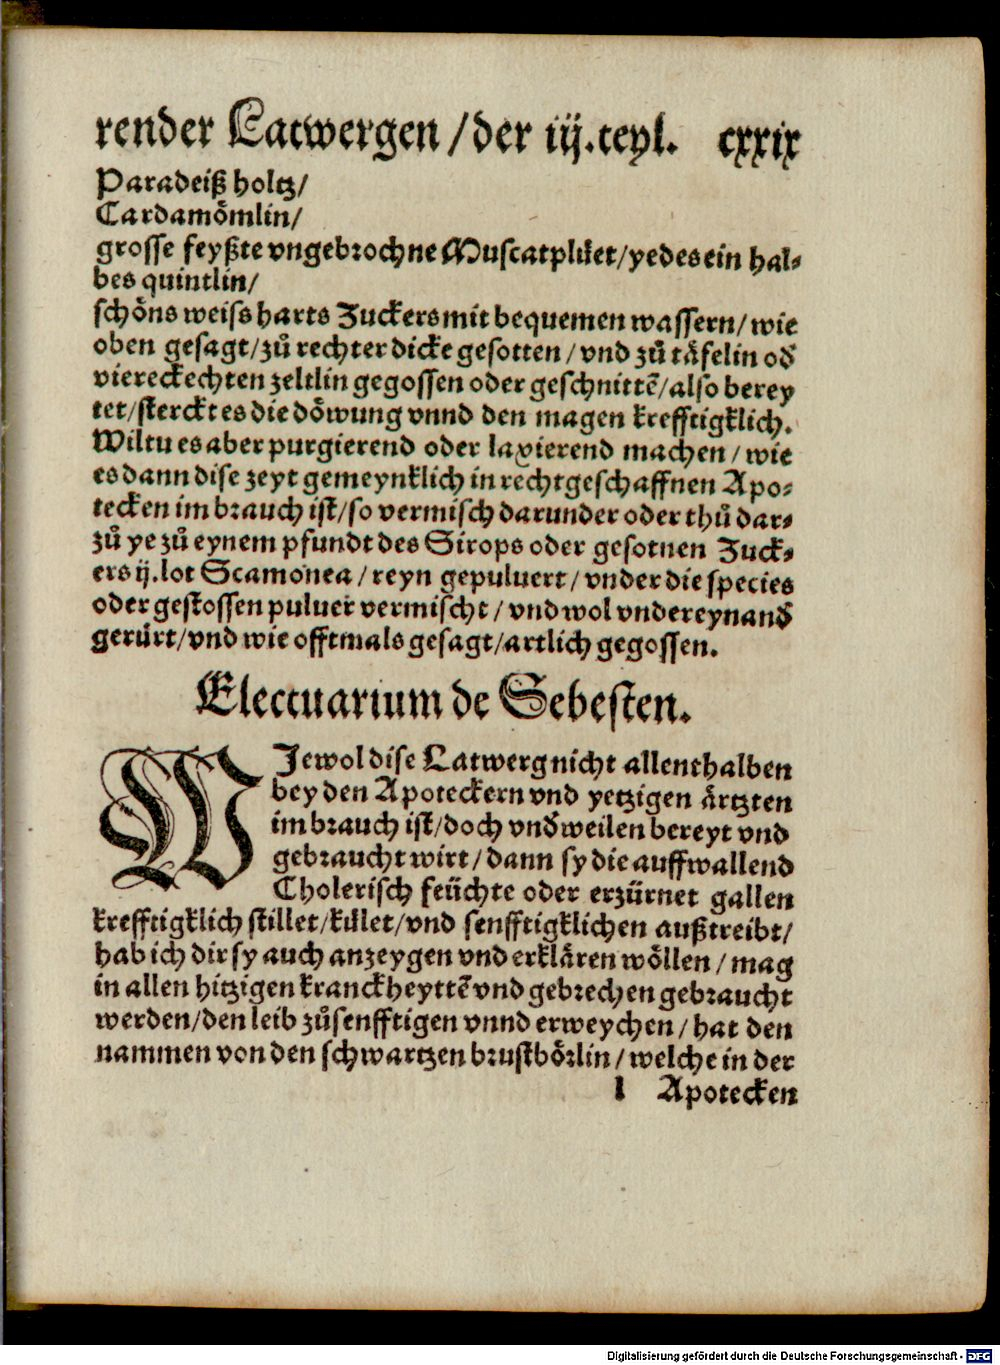 render Latwergen / der iij. teyl. cxxix
Paradeiß holtz/
Cardamoͤmlin/
grosse feyßte vngebrochne Muscatpluͤet/yedes ein hal-
bes quintlin/
schoͤns weiss harts Zuckers mit bequemen wassern/ wie
oben gesagt/zuͦ rechter dicke gesotten / vnd zuͦ taͤfelin od̕
viereckechten zeltlin gegossen oder geschnittē/also berey
tet/sterckt es die doͤwung vnnd den magen krefftigklich.
Wiltu es aber purgierend oder laxierend machen / wie
es dann dise zeyt gemeynklich in rechtgeschaffnen Apo-
tecken im brauch ist/so vermisch darunder oder thuͦ dar-
zuͦ ye zuͦ eynem pfundt des Sirops oder gesotnen Zuck-
ers ij. lot Scamonea / reyn gepuluert / vnder die species
oder gestossen puluer vermischt / vnd wol vndereynand̕
geruͤrt/vnd wie offtmals gesagt/artlich gegossen.
Electuarium de Sebesten.
WJewol dise Latwerg nicht allenthalben
bey den Apoteckern vnd yetzigen aͤrtzten
im brauch ist/doch vnd̕weilen bereyt vnd
gebraucht wirt / dann sy die auffwallend
Cholerisch feuͤchte oder erzuͤrnet gallen
krefftigklich stillet/kuͤlet/vnd senfftigklichen außtreibt/
hab ich dir sy auch anzeygen vnd erklaͤren woͤllen / mag
in allen hitzigen kranckheyttē vnd gebrechen gebraucht
werden/den leib zuͦsenfftigen vnnd erweychen / hat den
nammen von den schwartzen brustboͤrlin / welche in der
l Apotecken
Digitalisierung gefördert durch die Deutsche Forschungsgemeinschaft - DFG